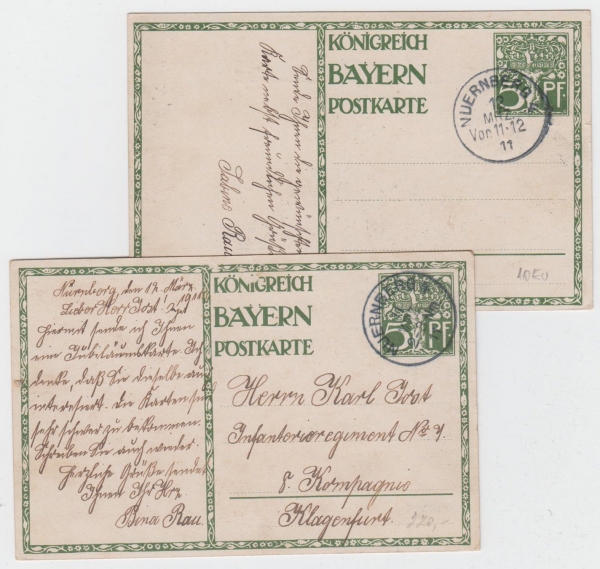 KÖNIGREICH
BAYERN
POSTKARTE
5 PF
NUERNBERG
12
MRZ
Vor. 11-12
11
Sende Ihnen die gewünschte
Karte nebst freundlichen Grüße
Rau
10 EU
Nürnberg, den 12. März 1911
Lieber Herr Jost!
Hiermit sende ich Ihnen
eine Jubiläumskarte. Ich
denke, daß Sie dieselbe auch
interesiert. Die Karten sind
sehr schwer zu bekommen.
Schreiben Sie auch wieder.
Herzliche Grüße sendet
Ihnen Ihr Hrz.
Bina Rau.
KÖNIGREICH
BAYERN
POSTKARTE
5 PF
NUERNBERG
Herrn Karl Jost
Infanterieregiment No
8. Kompagnie
Klagenfurt.